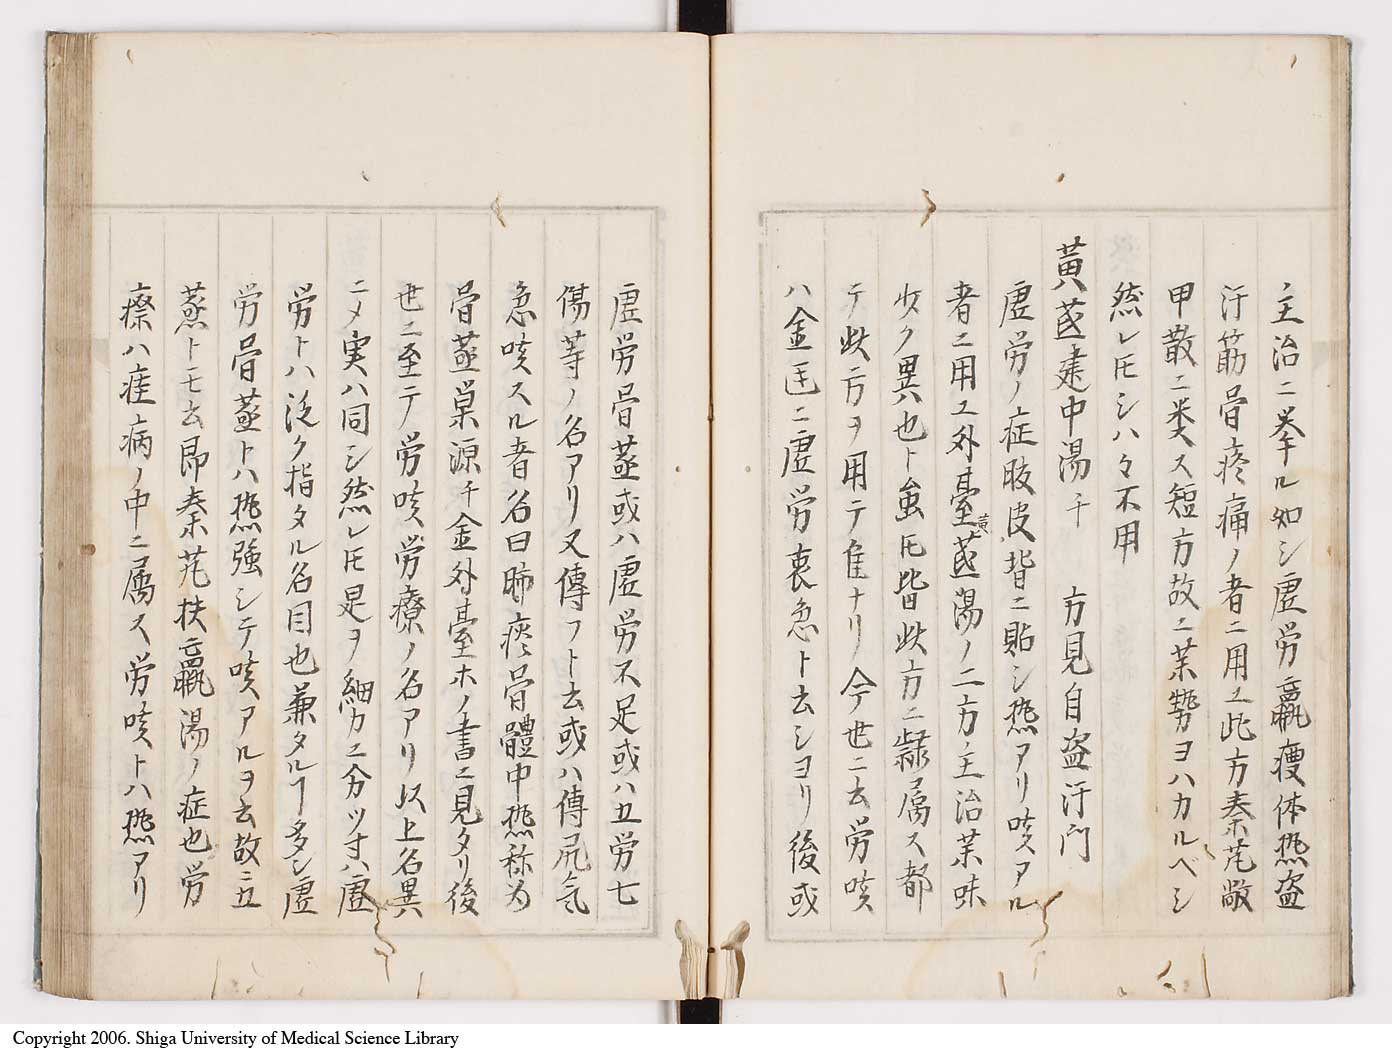 主治ニ挙ル如シ虚労羸痩体热盗
汗筋骨疼痛ノ者ニ用ユ此方秦艽鱉
甲散ニ类ス短方故ニ薬勢ヨハカルベシ
然レ𪜈シハ々不用
黄蓍建中湯千　方見自盗汗門
虚労ノ症肢皮背ニ貼シ热アリ咳アル
者ニ用ユ外臺黄蓍湯ノ二方主治薬味
少ク異也ト虽𪜈皆此方ニ隷属ス都
テ此方ヲ用テ隹ナリ今世ニ云労咳
ハ金匱ニ虚労裏急ト云シヨリ後或
虚労骨蒸或ハ虚労不足或ハ五労七
傷等ノ名アリ又傳フト云或ハ傳尸気
急咳スル者名曰肺痿骨體中热称為
骨蒸巣源千金外臺ホノ書ニ見タリ後
世ニ至テ労咳労療ノ名アリ以上名異
ニメ実ハ同シ然レ𪜈是ヲ細カニ分ツ寸ハ虚
労トハ泛ク指タル名目也兼タルヿ多シ虚
労骨蒸トハ热強シテ咳アルヲ云故ニ五
蒸トモ云即秦艽扶羸湯ノ症也労
瘵ハ疰病ノ中ニ属ス労咳トハ热アリ
Copyright 2006. Shiga University of Medical Science Library